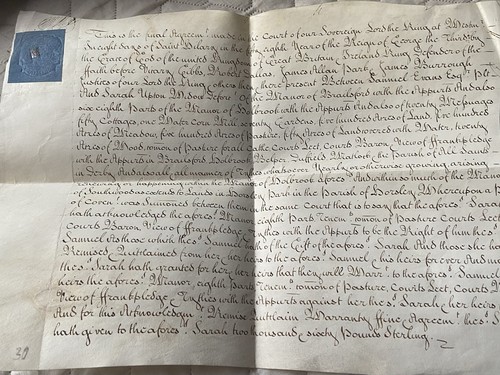 This is the final Agreemt. made in the Court of our Sovereign Lord the King at Westmr.
In eight days of Saint Hilary in the fifty eighth Year of the Reign of George the Third by
the Grace of God of the united Kingdom Britain Ireland King Defender of the
Faith before Vicary Gibbs, Robert Dallas, James Allan Park James Burrough
Justices of our Lord the King others then there present Between Samuel Evans Esqr. Plt.
And Sarah Upton Widow Defort. of the Manor of Brailsford with the Appurts And also
six eighth Parts of the Manor of Holbrook with the Appurts And also of twenty Messuages
fifty Cottages, one Water Corn Mill seventy Gardens five hundred Acres of Land, five hundred
Acres of Meadow, five hundred Acres of Pasture, fifty Acres of Land covered with Water, twenty
Acres of Wood, comon of Pasture for all Cattle Courts Leet, Courts Baron, View of ffrankpledge
with the Appurts in Brailsford Holbrook Belper Duffield Parish of All Saints
in Derby And also all manner of Tythes whatsoever Yearly growing arising
renewing or happening within the Manor of Holbrook afores. And the Manor
of Southwood extends to Lands in Horsley Park in the Parish of Horsley Whereupon a plea
of Coven.t was summoned between them in the same Court that is to say that the afores.d Sarah
hath acknowledged the afores.d Manor eighth Part Tenem.ts comon of Pasture Courts Leet
Courts Baron View of ffrankpledge Tythes with the Appurts to be the Right of him the s.d
Samuel As those which the s.d Samuel hath of the Gift of the afores.d Sarah And those she hath
Remised Quitclaimed from her her heirs to the afores.d Samuel his heirs for ever And
the s.d Sarah hath granted for her her heirs that they will Warr.t to the afores.d Samuel
heirs the afores.d Manor, eighth Parts Tenem.ts comon of Pasture, Courts Leet, Courts
View of ffrankpledge Tythes with the Appurts against her the s.d Sarah her heirs
And for this Acknowledgm.t Remise Quitclaim Warranty ffine Agreem.t the s.d
hath given to the afores.d Sarah two thousand sixty Pounds Sterling.
30